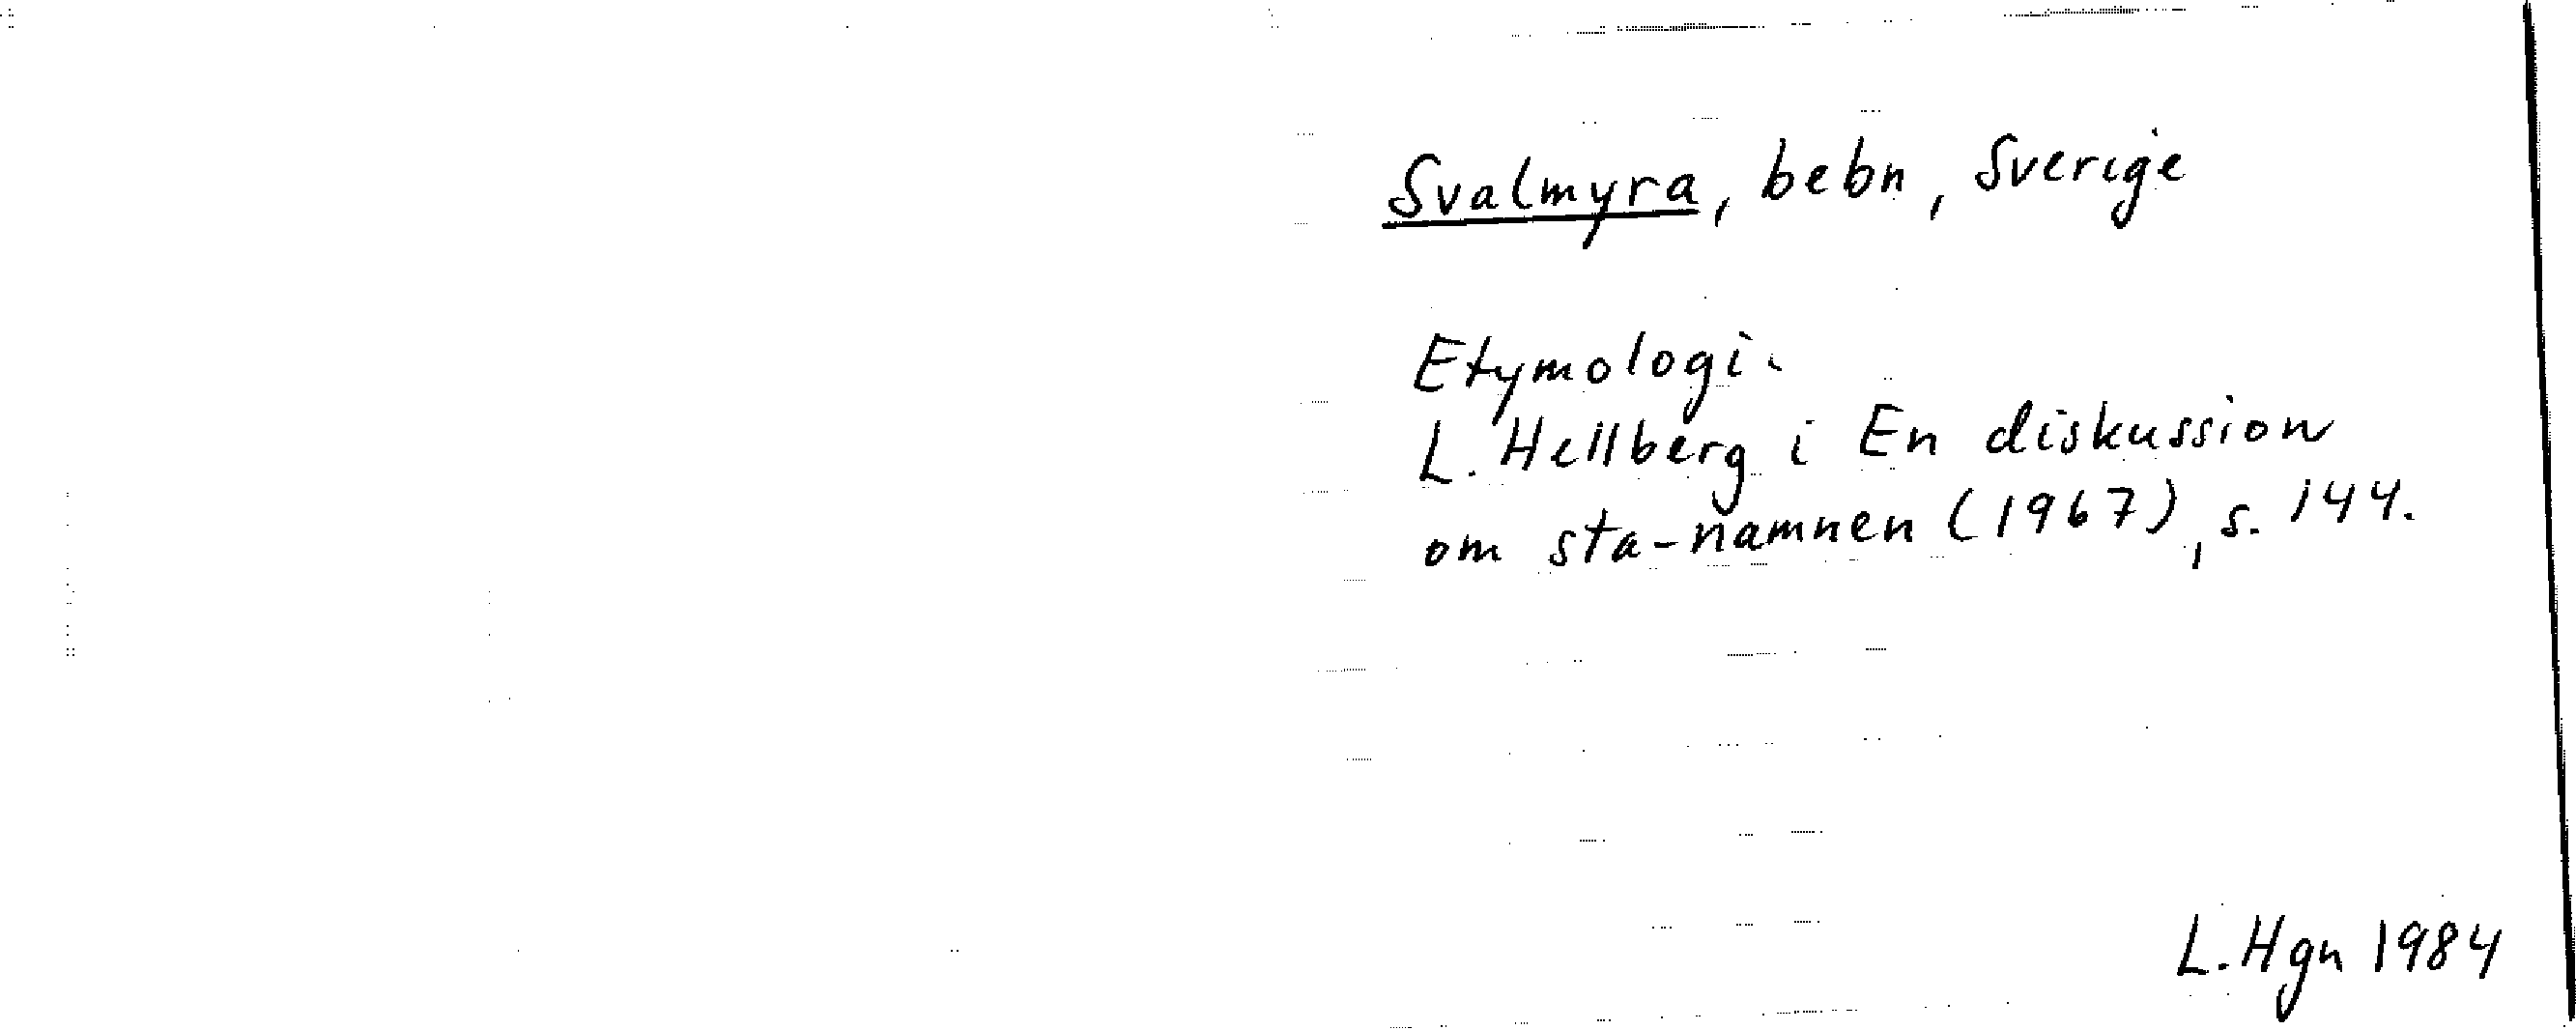 Svalmyra, bebn, Sverige
Etymologi.
L. Hellberg i En diskussion
om sta-namnen (1967), s. 144.
L. Hgn 1984